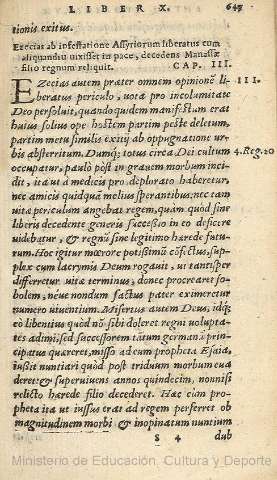 LIBER X. 647
tionis exitus.
Ezecias ab infestatione Assyriorum liberatus cum
aliquandiu uixisset in pace, decedens Manassæ
filio regnum reliquit. CAP. III.
EZecias autem præter omnem opinionẽ li- III.
beratus periculo, uota pro incolumitate
Deo persoluit, quando quidem manifestum erat
huius solius ope hostem partim peste deletum,
partim metu similis exitij ab oppugnatione ur-
bis absterritum. Dumq; totus circa Dei cultum 4. Reg. 20
occupatur, paulò pòst in grauem morbum inci-
dit, ita ut à medicis pro deplorato haberetur,
nec amicis quidquã melius sperantibus. nec tam
uitæ periculum angebat regem, quàm quòd sine
liberis decedente generis successio in eo deficere
uidebatur, & regnũ sine legitimo hærede futu-
rum. Hoc igitur mœrore potissimũ cõfectus, sup-
plex cum lacrymis Deum rogauit, ut tantisper
differretur uitæ terminus, donec procrearet so-
bolem, neue nondum factus pater eximeretur
numero uiuentium. Misertus autem Deus, idq;
eo libentius quòd nõ sibi doleret regni uolupta-
tes adimi, sed successorem tãtum germanũ prin-
cipatus quæreret, misso ad eum propheta Esaia,
iussit nuntiari quòd post triduum morbum eua
deret: & superuiuens annos quindecim, nonnisi
relicto hærede filio decederet. Hæc cùm pro-
pheta ita ut iussus erat ad regem perferret ob
magnitudinem morbi & inopinatum nuntium
S 4 dub
Ministerio de Educación, Cultura y Deporte